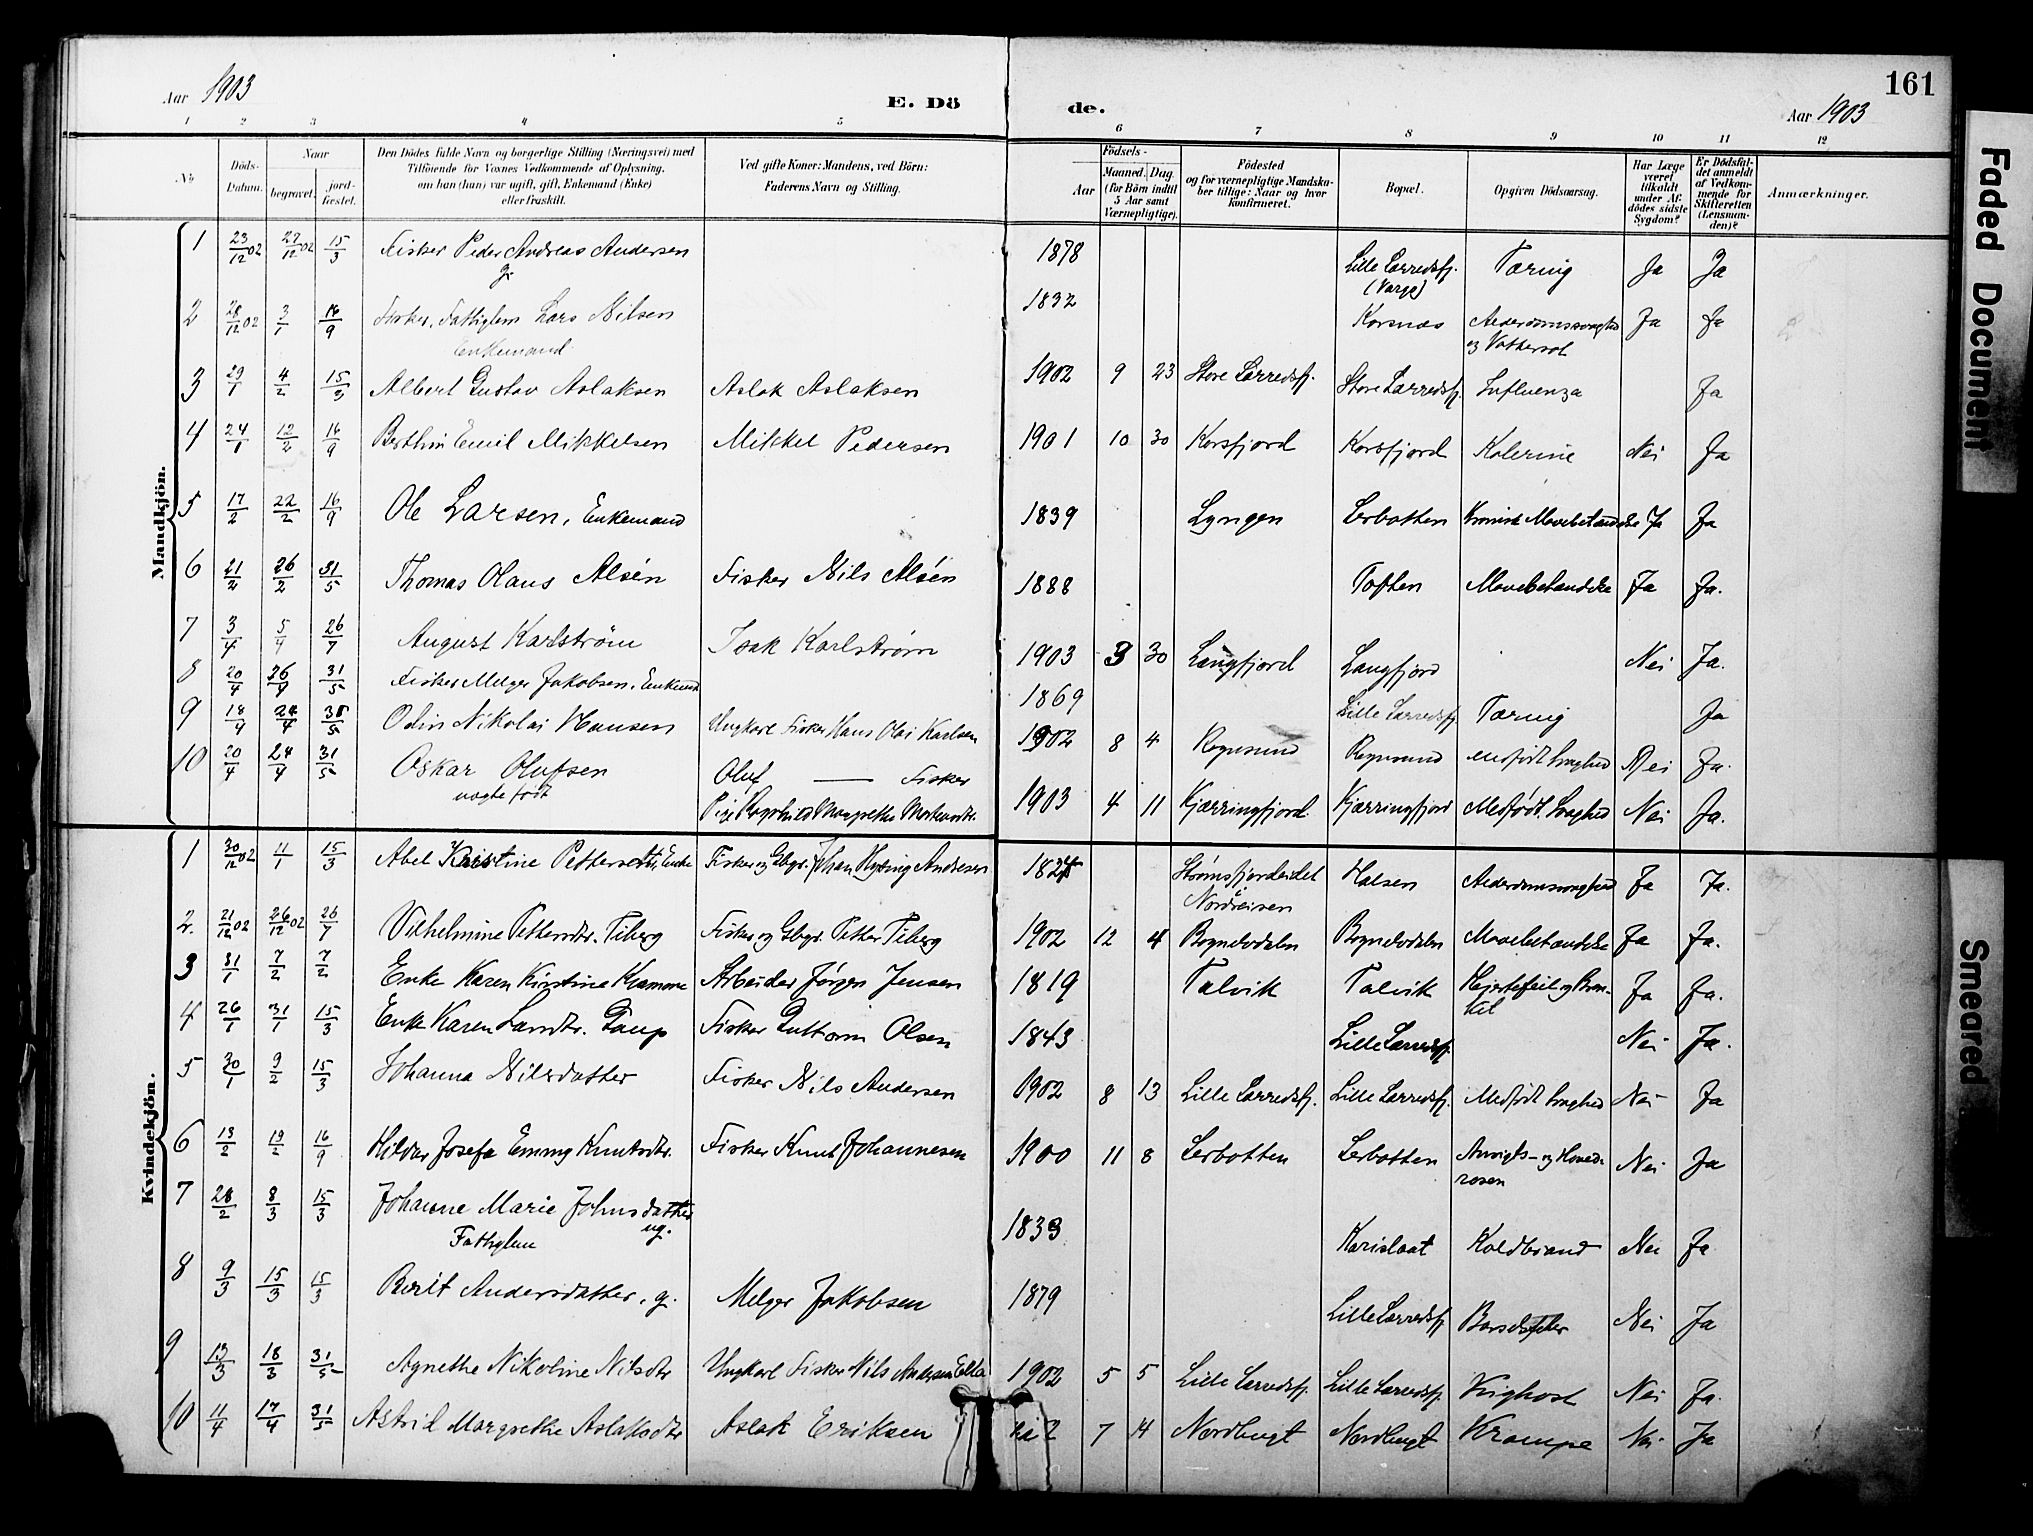 161
Aar 1903
E. Dö
de.
Aar 1903
1 2 3 4 5 6 7 8 9 10 11 12
No.
Döds-
Datum.
Naar
begravet.
jord-
fæstet.
Den Dödes fulde Navn og borgerlige Stilling (Næringsvei) med
Tilföiende for Voxnes Vedkommende af Oplysning,
om han (hun) var ugift, gift, Enkemand (Enke)
eller fraskilt.
Ved gifte Koner: Mandens, ved Börn:
Faderens Navn og Stilling.
Födsels-
Aar
Maaned.
Dag.
(for Börn indtil
5 Aar samt
Værnepligtige).
Födested
og for værnepligtige Mandska-
ber tillige: Naar og hvor
konfirmeret.
Bopæl.
Opgiven Dödsaarsag.
Har Læge
været
tilkaldt
under Af-
dödes sidste
Sygdom?
Er Dödsfal-
det anmeldt
af Vedkom-
mende for
Skifteretten
(Lensman-
den)?
Anmærkninger.
Mandkjön.
1 23/12 02 27/12 02 15/3 Fisker Peder Andreas Andersen 1878 Lille Lerredsfj. Tæring Ja Ja
g. (Varge)
2 28/12 02 3/1 16/9 Fisker, Fattiglem Lars Nilsen 1832 Korsnæs Alderdomssvaghed Ja Ja
Enkemand og Vattersot
3 29/1 4/2 15/3 Albert Gustav Aslaksen Aslak Aslaksen 1902 9 23 Store Lerredsfj. Store Lerredsfj. Influenza Ja
4 24/1 12/2 16/9 Berthin Emil Mikkelsen Mikkel Pedersen 1901 10 30 Korsfjord Korsfjord Kolerine Nei Ja
5 17/2 22/2 16/9 Ole Larsen, Enkemand 1839 Lyngen Lerbotten Kronisk Mavebetændelse Ja Ja
6 21/2 26/2 31/5 Thomas Olaus Alsén Fisker Nils Alsén 1888 Toften Mavebetændelse Ja Ja.
7 3/4 5/4 26/7 August Karlström Isak Karlström 1903 3 30 Langfjord Langfjord Nei Ja.
8 20/4 26/4 31/5 Fisker Melger Jakobsen, Enkemd 1869 Lille Lerredsfj. Tæring Ja
9 18/4 24/4 31/5 Odin Nikolai Hansen Ungkarl Fisker Hans Olai Karlsen 1902 8 4 Rognsund Rognsund Medfødt Svaghed Nei Ja.
10 20/4 24/4 31/5 Oskar Olufsen Oluf — Fisker
uægte født Pige Ragnhild Margrethe 1903 4 11 Kjærringfjord Kjærringfjord Medfødt Svaghed Nei Ja.
Kvindekjön.
1 30/12 02 11/1 15/3 Abel Kristine Enke Fisker og Gbgr. Johan Hysing Andresen Strømsfjordeidet Halsen Alderdomssvaghed Ja Ja.
Nordreisen
2. 21/12 02 26/12 02 26/7 Vilhelmine Pettersdtr. Tiberg Fisker og Gbgr. Petter Tiberg 1902 12 4 Bognelvdalen Bognelvdalen Mavebetændelse Ja Ja.
3 31/1 7/2 7/2 Enke Karen Kirstine Arbeider Jørgen Jensen 1819 Talvik Talvik Hjertefeil og Bron- Ja Ja.
kit
4 26/1 31/1 15/3 Enke Karen Larsdtr. Gaup Fisker Guttorm Olsen 1843 Lille Lerredsfj. Nei Ja.
5 30/1 9/2 15/3 Johanna Nilsdatter Fisker Nils Andersen 1902 8 13 Lille Lerredsfj. Lille Lerredsfj. Medfødt Svaghed Nei Ja
6 13/2 19/2 16/9 Hildur Josefa Emmy Knutsdtr. Fisker Knut Johannesen 1900 11 8 Lerbotten Lerbotten Ansigts- og Hoved- Nei Ja
rosen
7 28/2 8/3 15/3 Johanne Marie Johnsdatter 1833 Korislaat Koldbrand Nei Ja
Fattiglem ug.
8 9/3 15/3 15/3 Berit Andersdatter, g. Melger Jakobsen 1879 Lille Lerredsfj. Barselsfeber Nei Ja
9 13/3 18/3 31/5 Agnethe Nikoline Nilsdtr Ungkarl Fisker Nils Andersen 1902 5 5 Lille Lerredsfj. Lille Lerredsfj. Kighost Nei Ja.
10 11/4 17/4 31/5 Astrid Margrethe Aslaksdtr Aslak Eriksen 7 14 Nordbugt Nordbugt Krampe Nei Ja
Faded Document
Smeared